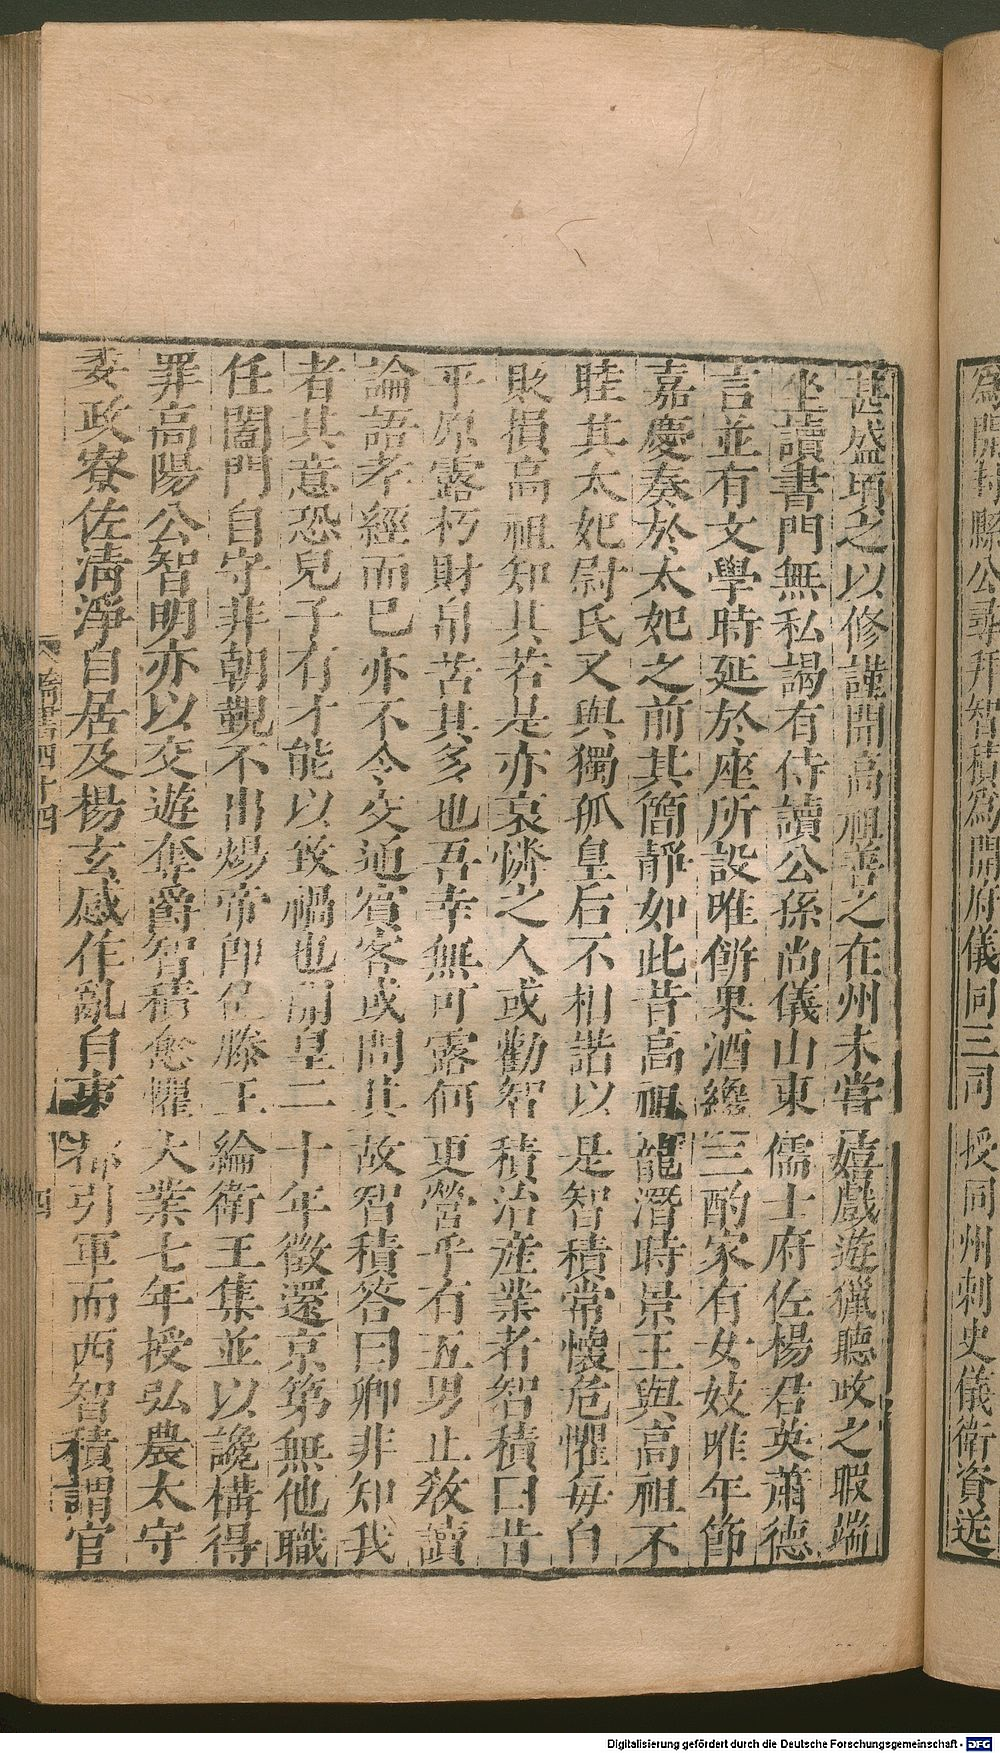 為開封縣公尋拜智積為開府儀同三司授同州刺史儀衛資送
甚盛頃之以修謹聞高祖善之在州未嘗嬉戲遊獵聽政之暇端
坐讀書門無私謁有侍讀公孫尚儀山東儒士府佐楊君英蕭德
言並有文學時延於座所設唯餅果酒纔三酌家有女妓唯年節
嘉慶奏於太妃之前其簡靜如此昔高祖龍潛時景王與高祖不
睦其太妃尉氏又與獨孤皇后不相諧以是智積常懷危懼每自
貶損高祖知其若是亦哀憐之人或勸智積治產業者智積曰昔
平原露朽財帛苦其多也吾幸無可露何更營乎有五男止教讀
論語孝經而已亦不令交通賓客或問其故智積答曰卿非知我
者其意恐兒子有才能以致禍也開皇二十年徵還京第無他職
任闔門自守非朝覲不出煬帝即位滕王綸衛王集並以讒構得
罪高陽公智明亦以交遊奪爵智積愈懼大業七年授弘農太守
委政寮佐清淨自居及楊玄感作亂自東都引軍而西智積謂官
隋書四十四
四
Digitalisierung gefördert durch die Deutsche Forschungsgemeinschaft - DFG